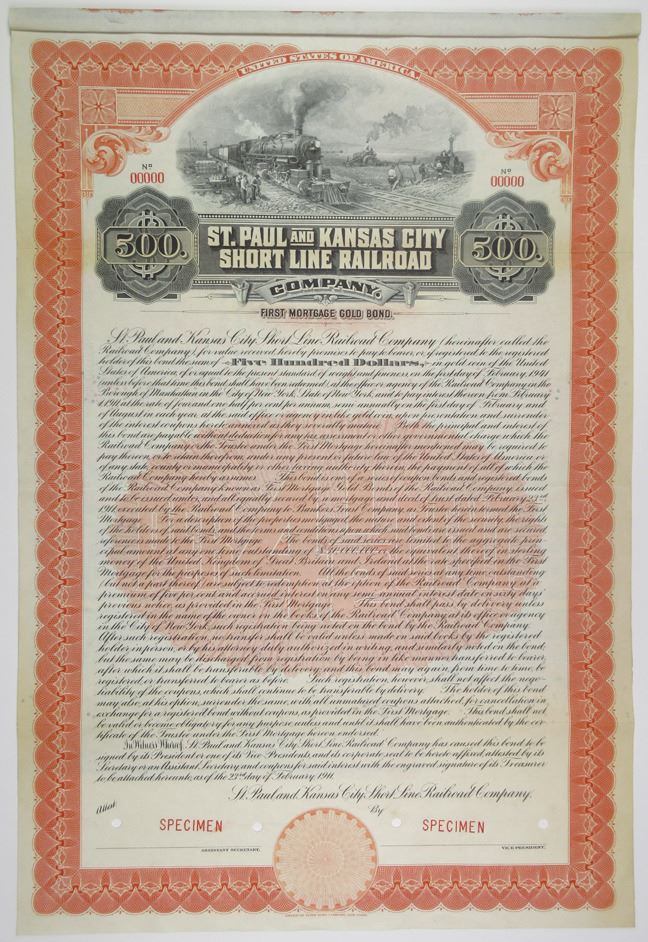 UNITED STATES OF AMERICA.
No
00000
No
00000
500.
500.
ST. PAUL AND KANSAS CITY
SHORT LINE RAILROAD
COMPANY.
FIRST MORTGAGE GOLD BOND.
St. Paul and Kansas City Short Line Railroad Company (hereinafter called the
Railroad Company), for value received, hereby promises to pay to bearer, or if registered, to the registered
holder of this bond, the sum of Five Hundred Dollars, in gold coin of the United
States of America, of or equal to the present standard of weight and fineness, on the first day of February, 1941
(unless before that time this bond shall have been redeemed), at the office or agency of the Railroad Company in the
Borough of Manhattan in the City of New York, State of New York, and to pay interest thereon, from February
1, 1911, at the rate of four and one half per cent per annum, semi-annually on the first day of February and
of August in each year, at the said office or agency, in like gold coin, upon presentation and surrender
of the interest coupons hereto annexed as they severally mature. Both the principal and interest of
this bond are payable without deduction for any tax, assessment or other governmental charge which the
Railroad Company or the Trustee under the First Mortgage hereinafter mentioned may be required to
pay thereon, or to retain therefrom, under any present or future law of the United States of America or
of any state, county or municipality or other taxing authority therein, the payment of all of which the
Railroad Company hereby assumes. This bond is one of a series of coupon bonds and registered bonds
of the Railroad Company known as its First Mortgage Gold Bonds of the Railroad Company, issued
and to be issued under, and all equally secured by, a mortgage and deed of trust dated February 23rd
1911, executed by the Railroad Company to Bankers Trust Company, as Trustee, herein termed the First
Mortgage. For a description of the properties mortgaged, the nature and extent of the security, the rights
of the holders of said bonds, and the terms and conditions upon which said bonds are issued and are secured
reference is made to the First Mortgage. The bonds of said issue are limited to the aggregate prin-
cipal amount at any one time outstanding of $30,000,000 or the equivalent thereof in sterling
money of the United Kingdom of Great Britain and Ireland at the rate specified in the First
Mortgage for the purposes of such limitation. All the bonds of said series at any time outstanding
(but not a part thereof) are subject to redemption at the option of the Railroad Company at a
premium of five per cent and accrued interest on any semi-annual interest date on sixty days'
previous notice, as provided in the First Mortgage. This bond shall pass by delivery unless
registered in the name of the owner on the books of the Railroad Company at its office or agency
in the City of New York, such registration being noted on the bond by the Railroad Company.
After such registration, no transfer shall be valid unless made on said books by the registered
holder in person, or by his attorney duly authorized in writing, and similarly noted on the bond;
but the same may be discharged from registration by being in like manner transferred to bearer,
after which it shall be transferable by delivery, and this bond may again, from time to time, be
registered, or transferred to bearer as before. Such registration, however, shall not affect the nego-
tiability of the coupons, which shall continue to be transferable by delivery. The holder of this bond
may also, at his option, surrender the same, with all unmatured coupons attached for cancellation in
exchange for a registered bond without coupons, as provided in the First Mortgage. This bond shall not
be valid or become obligatory for any purpose unless and until it shall have been authenticated by the cer-
tificate of the Trustee under the First Mortgage hereon endorsed.
In Witness Whereof, St. Paul and Kansas City Short Line Railroad Company has caused this bond to be
signed by its President or one of its Vice-Presidents, and its corporate seal to be hereto affixed, attested by its
Secretary or an Assistant Secretary, and coupons for said interest with the engraved signature of its Treasurer
to be attached hereunto, as of the 23rd day of February, 1911.
St. Paul and Kansas City Short Line Railroad Company,
Attest
By
SPECIMEN
SPECIMEN
ASSISTANT SECRETARY.
VICE PRESIDENT.